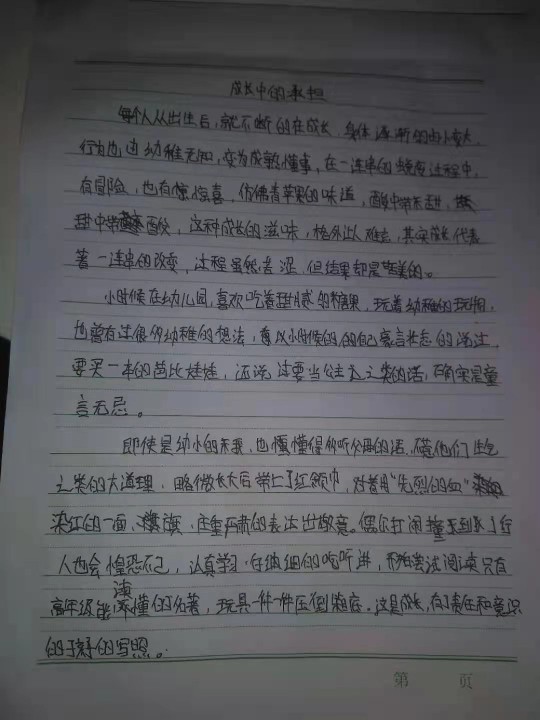 成长中的承担
每个人从出生后,就不断的在成长,身体逐渐的由小变大,
行为也由幼稚无知,变为成熟懂事,在一连串的蜕变过程中,
有冒险,也有惊喜,仿佛青苹果的味道,酸中带甜,
甜中带酸,这种成长的滋味,格外让人难忘,其实成长代表
著一连串的改变,过程虽然青涩,但结果却是甜美的。
小时候在幼儿园,喜欢吃着甜腻的糖果,玩着幼稚的玩偶,
也曾有过很多幼稚的想法,小时候的的自己豪言壮志的说过
要买一车的芭比娃娃,还说过要当公主之类的话,确实是童
言无忌。
即使是幼小的我,也懂得听父母的话,他们生气
之类的大道理,略微长大后带上了红领巾,对着用“先烈的血”
染红的一面旗,庄重严肃的表达出敬意。偶尔打闹撞到了行
人也会惶恐不已,认真学习,仔细的听讲,尝试阅读只有
高年级能读懂的名著,玩具一件一件压倒箱底。这是成长,有了责任和意识
的孩子的写照。
第 页